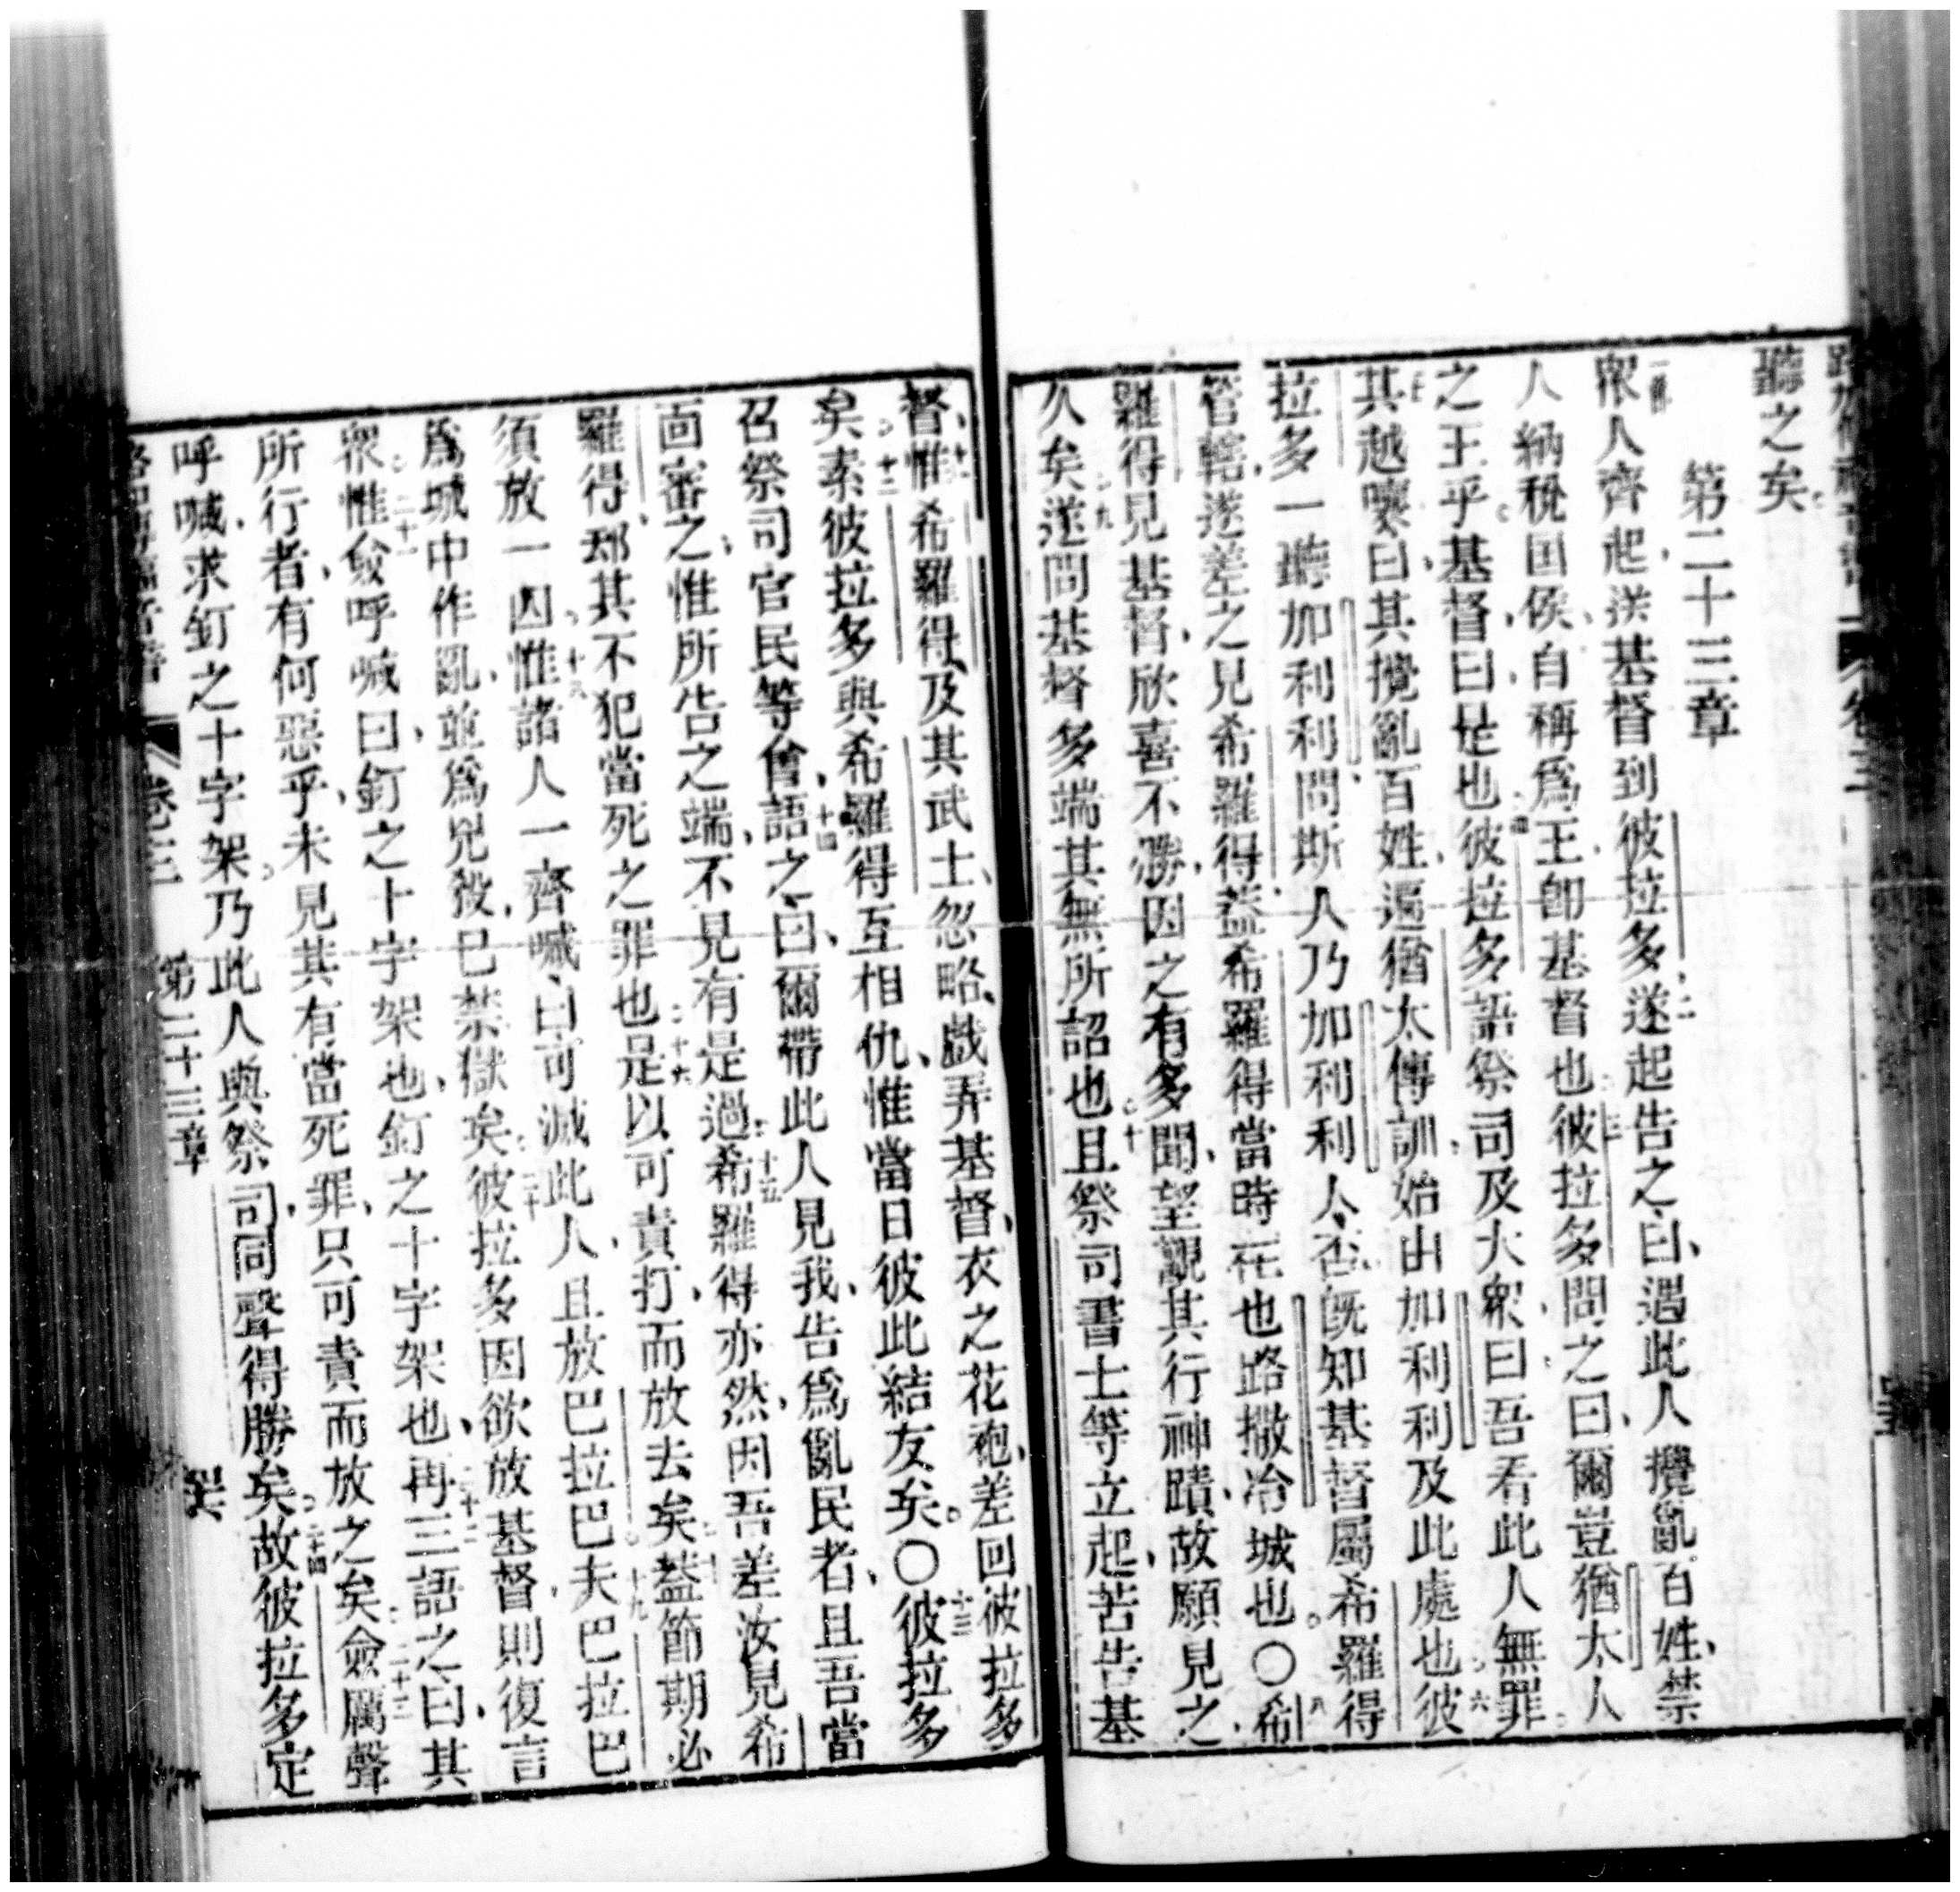 聽之矣
第二十三章
眾人齊起送基督到彼拉多二遂起告之曰遇此人攪亂百姓禁
人納稅囯侯自稱為王卽基督也三彼拉多問之曰爾豈猶太人
之王乎基督曰是也四彼拉多語祭司及大眾曰吾看此人無罪
其越嚷曰其攪亂百姓遍猶太傳訓始由加利利及此處也六彼
拉多一聽加利利問斯人乃加利利人否旣知基督屬希羅得
管轄遂差之見希羅得葢希羅得當時在也路撒冷城也〇八希
羅得見基督欣喜不勝因之有多聞望觀其行神蹟故願見之
久矣九遂問基督多端其無所詔也十且祭司書士等立起苦告基
督十一惟希羅得及其武士忽略戲弄基督衣之花袍差回彼拉多
矣十二素彼拉多與希羅得互相仇惟當日彼此結友矣〇十三彼拉多
召祭司官民等會十四語之曰爾帶此人見我告為亂民者且吾當
面審之惟所告之端不見有是過十五希羅得亦然因吾差汝見希
羅得郡其不犯當死之罪也十六是以可責打而放去矣葢節期必
須放一囚十八惟諸人一齊喊曰可滅此人且放巴拉巴十九夫巴拉巴
為城中作亂並為兇殺已禁獄矣二十彼拉多因欲放基督則復言
眾二十一惟僉呼喊曰釘之十字架也釘之十字架也二十二再三語之曰其
所行者有何惡乎未見其有當死罪只可責而放之矣二十三僉厲聲
呼喊求釘之十字架乃此人與祭司同聲得勝矣二十四故彼拉多定
卷三 第二十三章